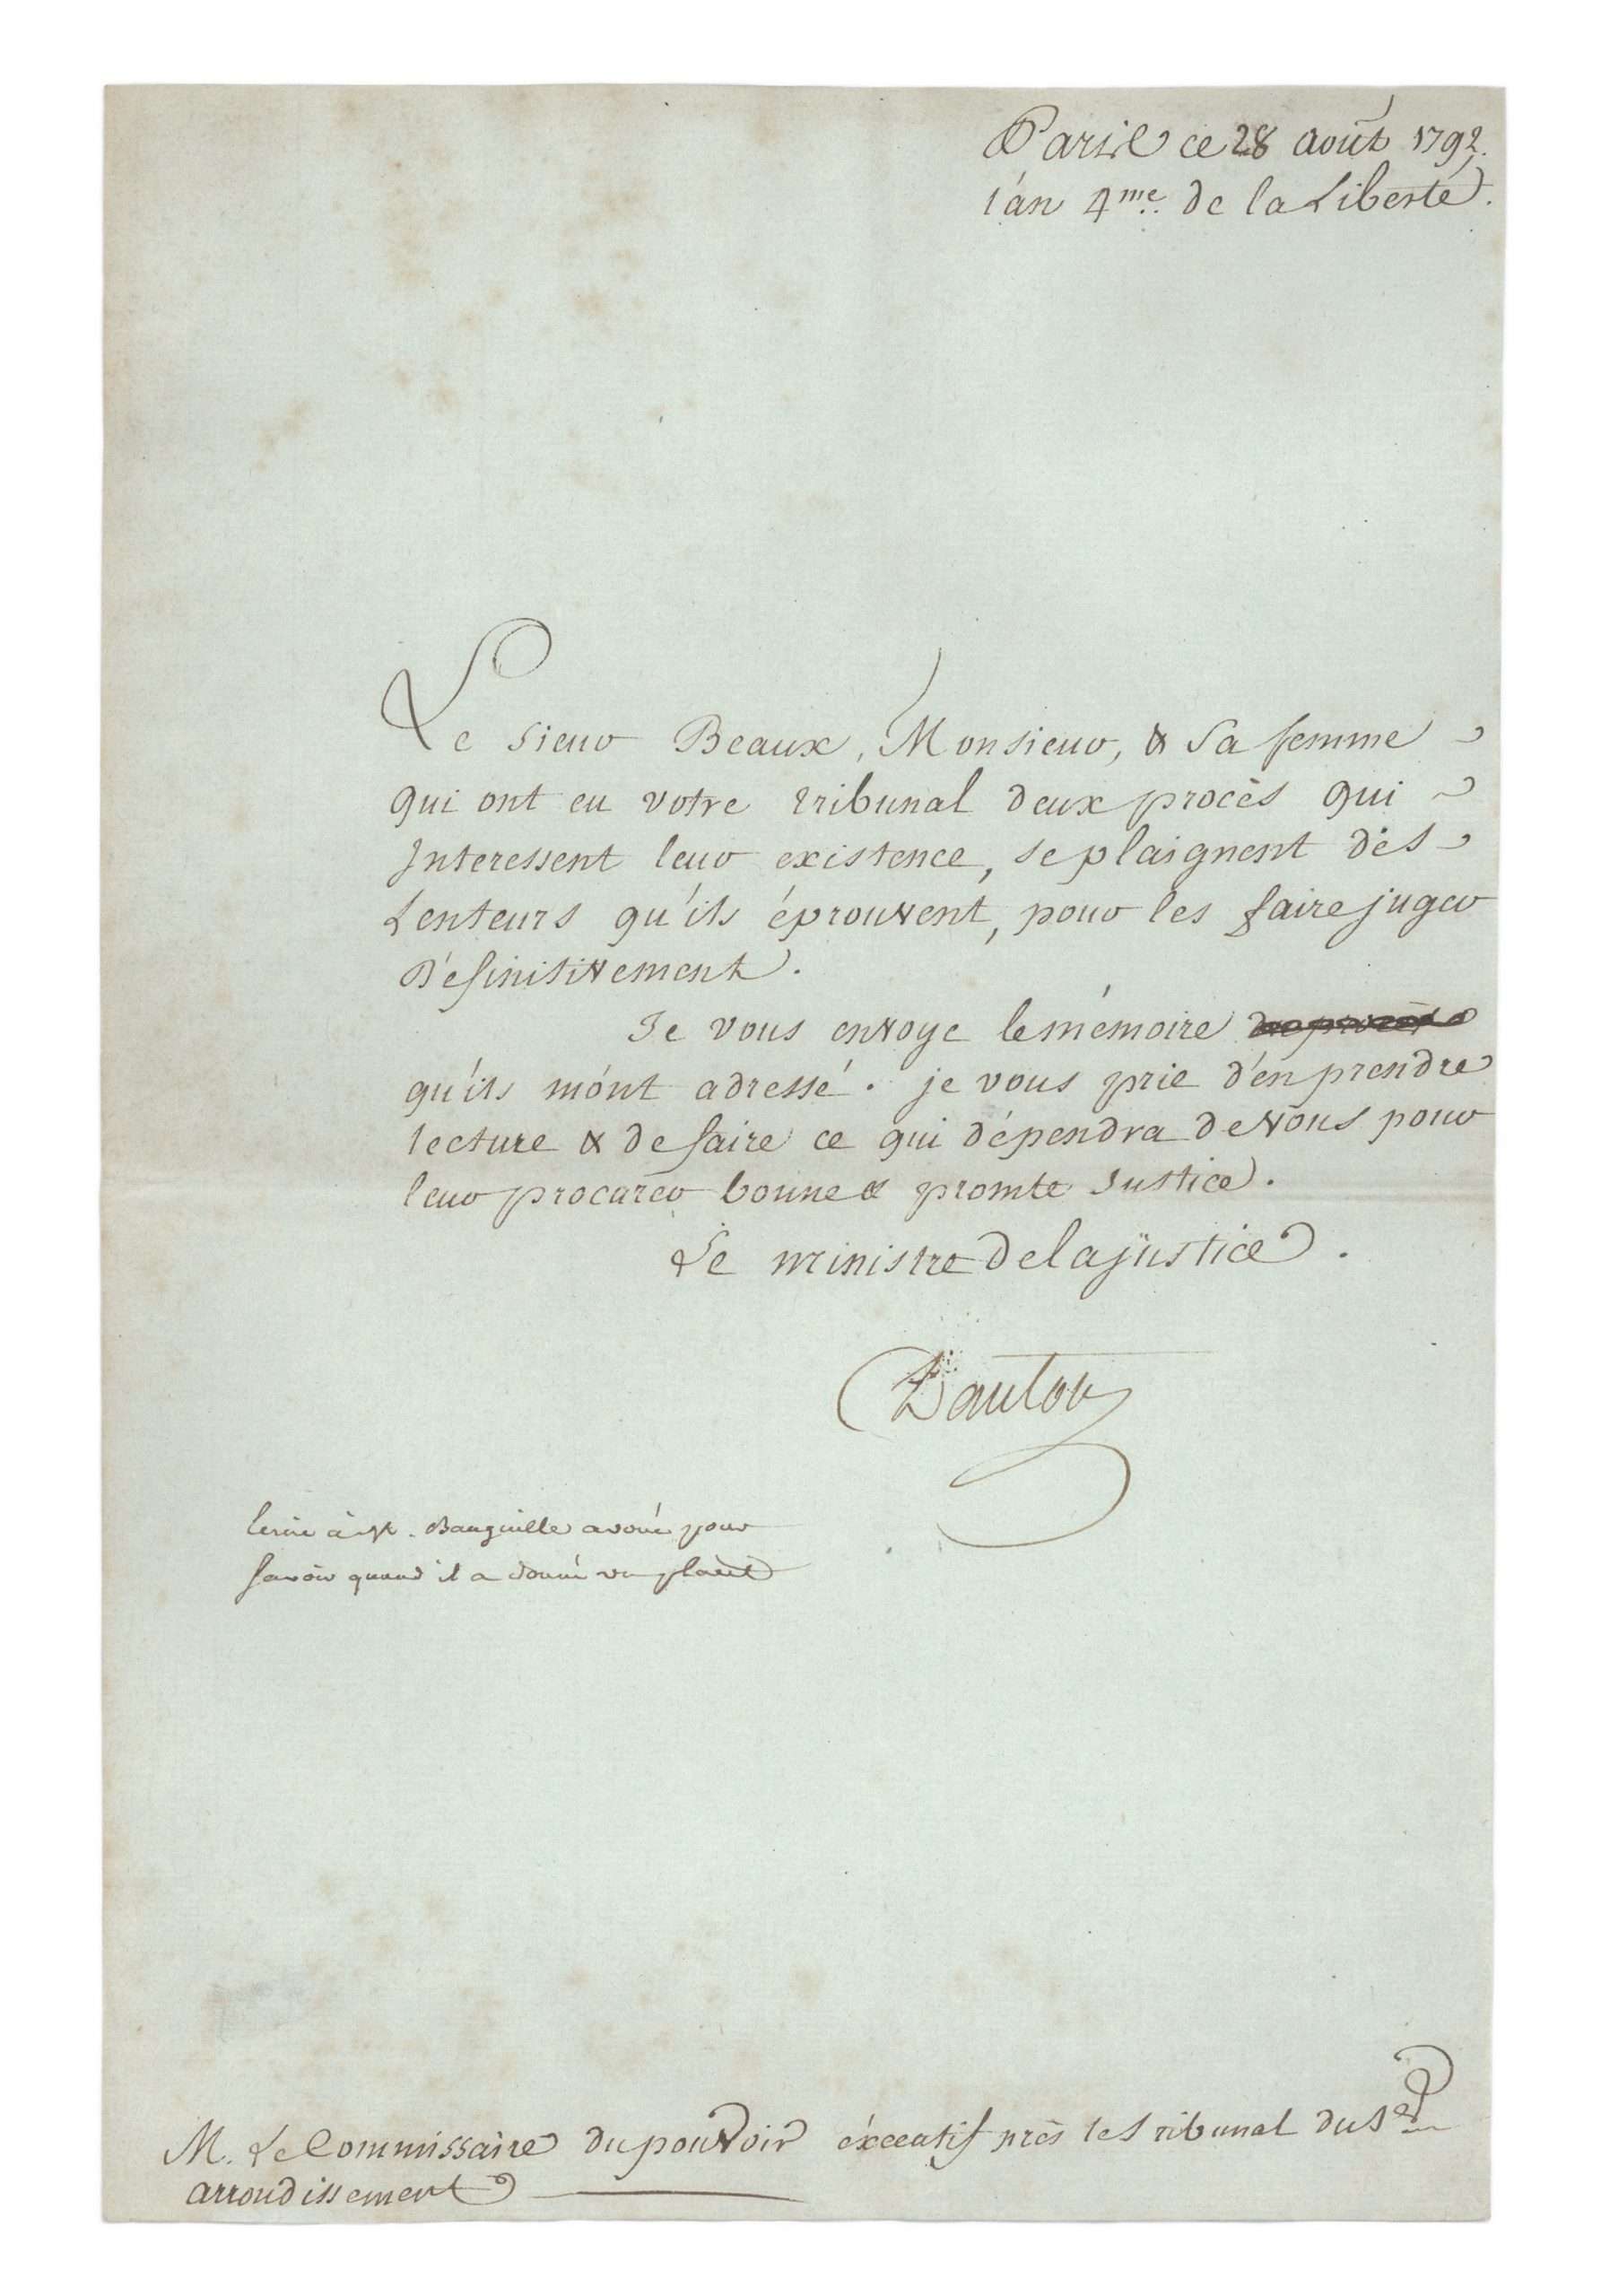 Paris ce 28 août 1792.
l'an 4.me de la Liberté.
Le sieur Beaux, Monsieur, & sa femme
qui ont eu votre tribunal deux procès qui
Interessent leur existence, se plaignent des
Lenteurs qu'ils éprouvent, pour les faire juger
Définitivement.
Je vous envoye le mémoire
qu'ils m'ont adressé. je vous prie d'en prendre
lecture & de faire ce qui dépendra de vous pour
leur procurer bonne & promte Justice.
Le ministre de la justice.
Danton
avoué pour
savoir quand il a donné
M. Le Commissaire du pouvoir éxécutif près le tribunal du
arrondissement